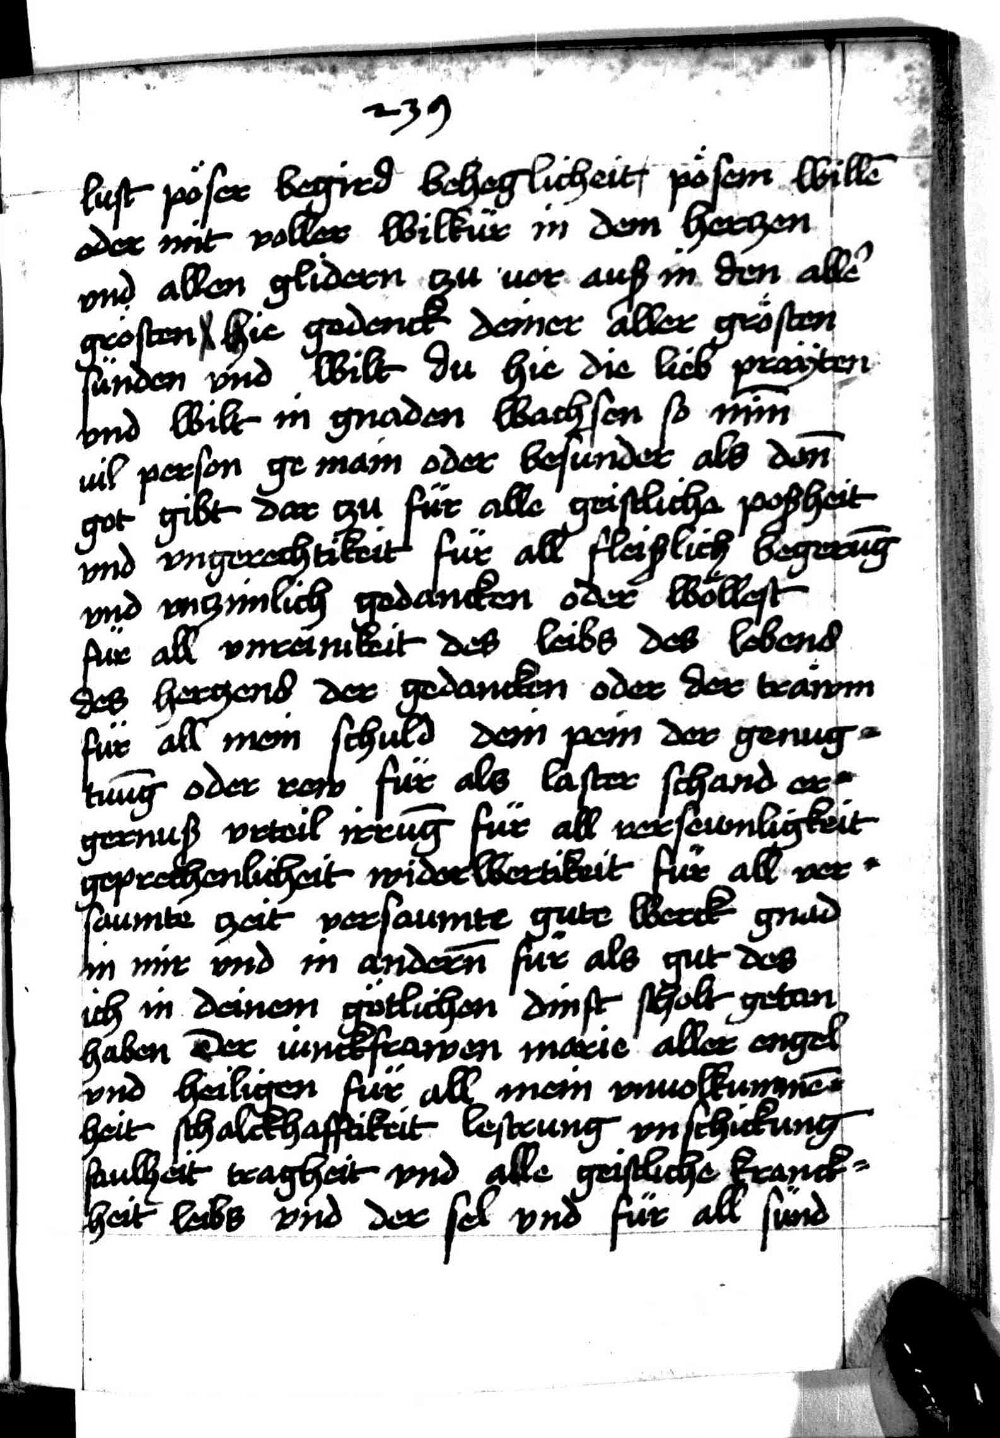 239
lust pöser begird beheglicheit pösem willē
oder mit voller wilkür in dem hertzen
vnd allen glidern tzu vor auß in den allē
grösten hie gedenck deiner aller grösten
sünden vnd wilt du hie die lieb prayten
vnd wilt in gnaden wachsen so nim̄
vil person gemain oder besunder als den̄
got gibt dar tzu für alle geistliche poßheit
vnd vngerechtikeit für all fleißlich begerūg
vnd vntzimlich gedancken oder wöllest
für all vnreinikeit des leibs des lebens
des hertzens der gedancken oder der träwm
für all mein schuld dein pein der genug=
tuūg oder rew für als laster schand er=
gernuß vrteil irrūg für all versewnligkeit
geprechenlicheit widerwertikeit für all ver=
saumte zeit versaumte gute werck gnad
in mir vnd in andern̄ für als gut des
ich in deinem götlichen dinst scholt getan
haben Der iunckfrawen marie aller engel
vnd heiligen für all mein vnuolkummē=
heit schalckhafftikeit lestrung vnschickung
faulheit tragheit vnd alle geistliche kranck=
heit leibs vnd der sel vnd für all sünd